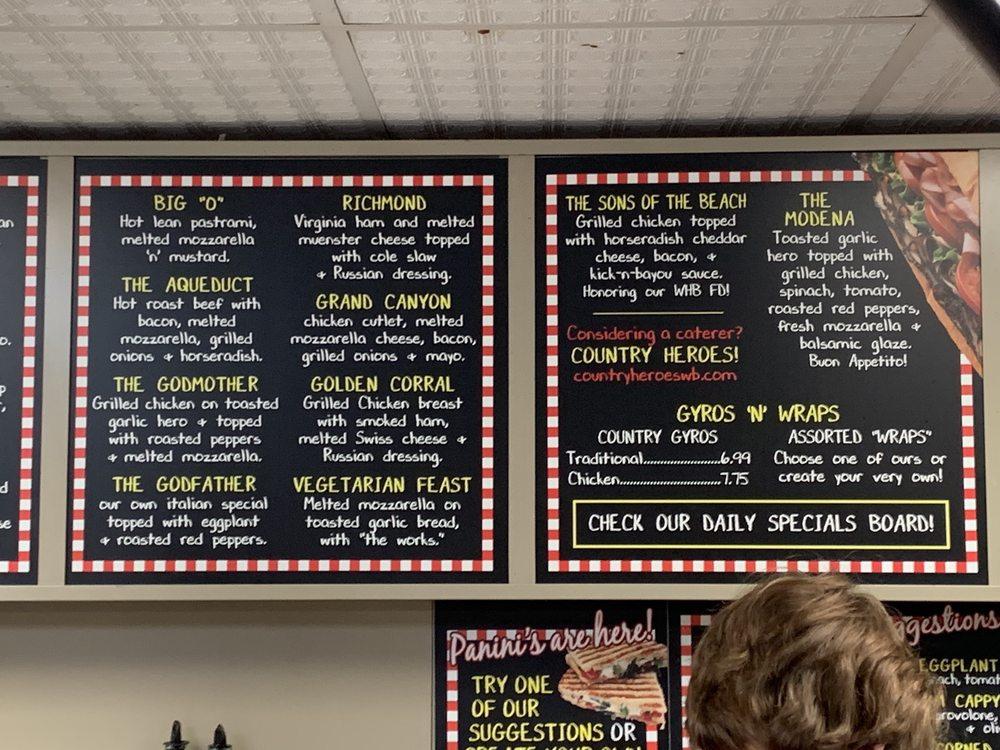 BIG "O"
Hot lean pastrami,
melted mozzarella
'n' mustard.
THE AQUEDUCT
Hot roast beef with
bacon, melted
mozzarella, grilled
onions & horseradish.
THE GODMOTHER
Grilled chicken on toasted
garlic hero & topped
with roasted peppers
& melted mozzarella.
THE GODFATHER
our own italian special
topped with eggplant
& roasted red peppers.
RICHMOND
Virginia ham and melted
muenster cheese topped
with cole slaw
& Russian dressing.
GRAND CANYON
chicken cutlet, melted
mozzarella cheese, bacon,
grilled onions & mayo.
GOLDEN CORRAL
Grilled Chicken breast
with smoked ham,
melted Swiss cheese &
Russian dressing.
VEGETARIAN FEAST
Melted mozzarella on
toasted garlic bread,
with "the works."
THE SONS OF THE BEACH
Grilled chicken topped
with horseradish cheddar
cheese, bacon, &
kick-n-bayou sauce.
Honoring our WHB FD!
Considering a caterer?
COUNTRY HEROES!
countryheroeswb.com
THE
MODENA
Toasted garlic
hero topped with
grilled chicken,
spinach, tomato,
roasted red peppers,
fresh mozzarella &
balsamic glaze.
Buon Appetito!
GYROS 'N' WRAPS
COUNTRY GYROS
Traditional......................6.99
Chicken............................7.75
ASSORTED "WRAPS"
Choose one of ours or
create your very own!
CHECK OUR DAILY SPECIALS BOARD!
Panini's are here!
TRY ONE
OF OUR
SUGGESTIONS OR
EGGPLANT
CAPPY